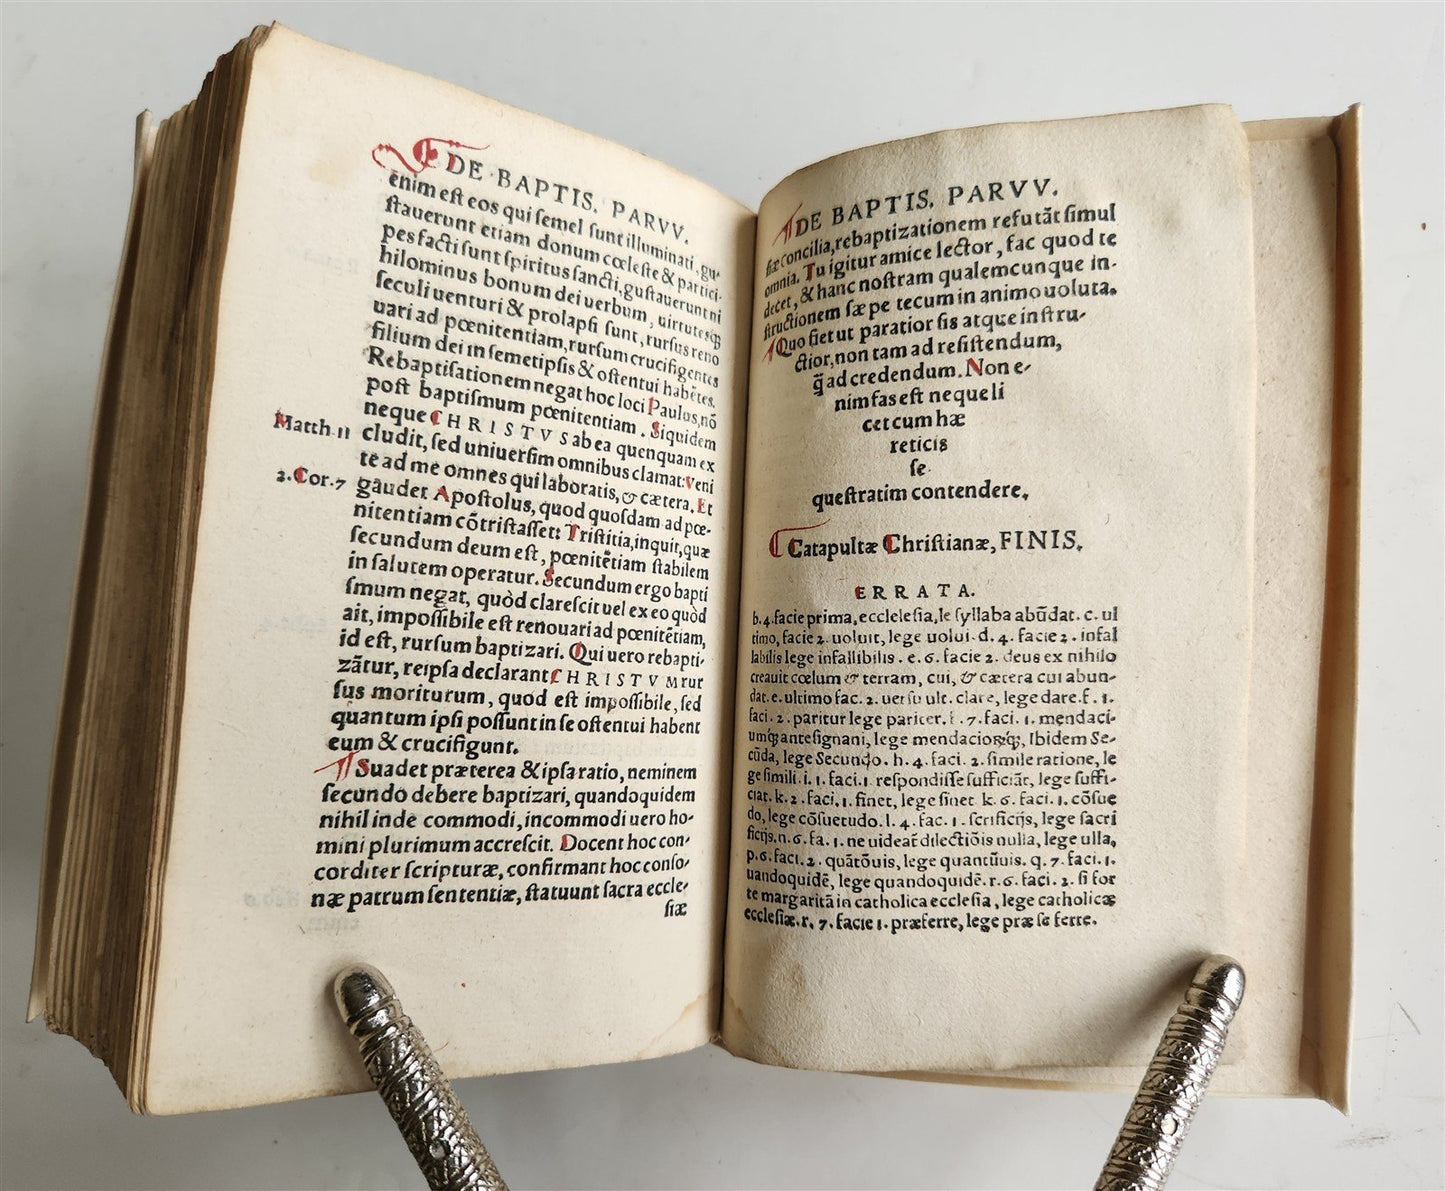 DE BAPTIS. PARVV.
enim eſt eos qui ſemel ſunt illuminati, gu-
ſtauerunt etiam donum cœleſte & partici-
pes facti ſunt ſpiritus ſancti, guſtauerunt ni
hilominus bonum dei uerbum, uirtutesq́ꝫ
ſeculi uenturi & prolapſi ſunt, rurſus reno
uari ad pœnitentiam, rurſum crucifigentes
filium dei in ſemetipſis & oſtentui habẽtes.
Rebaptiſationem negat hoc loci Paulus, nõ
poſt baptiſmum pœnitentiam. Siquidem
neque CHRISTVS ab ea quenquam ex
Matth. 11 cludit, ſed uniuerſim omnibus clamat: Veni
te ad me omnes qui laboratis, & cætera. Et
2. Cor. 7 gaudet Apoſtolus, quod quoſdam ad pœ-
nitentiam cõtriſtaſſet: Triſtitia, inquit, quæ
ſecundum deum eſt, pœnitẽtiam ſtabilem
in ſalutem operatur. Secundum ergo bapti
ſmum negat, quòd clareſcit uel ex eo quòd
ait, impoſſibile eſt renouari ad pœnitẽtiam,
id eſt, rurſum baptizari. Qui uero rebapti-
zãtur, reipſa declarant CHRISTVM rur
ſus moriturum, quod eſt impoſſibile, ſed
quantum ipſi poſſunt in ſe oſtentui habent
eum & crucifigunt.
¶ Suadet præterea & ipſa ratio, neminem
ſecundo debere baptizari, quandoquidem
nihil inde commodi, incommodi uero ho-
mini plurimum accreſcit. Docent hoc con-
corditer ſcripturæ, confirmant hoc conſo-
næ patrum ſententiæ, ſtatuunt ſacra eccle-
ſiæ
DE BAPTIS. PARVV.
ſiæ concilia, rebaptizationem refutãt ſimul
omnia. Tu igitur amice lector, fac quod te
decet, & hanc noſtram qualemcunque in-
ſtructionem ſæpe tecum in animo uoluta.
¶ Quo fiet ut paratior ſis atque inſtru-
ctior, non tam ad reſiſtendum,
q̃ ad credendum. Non e-
nim fas eſt neque li
cet cum hæ
reticis
ſe-
queſtratim contendere.
Catapultæ Chriſtianæ, FINIS.
ERRATA.
b. 4. facie prima, ecclelesia, le ſyllaba abũdat. c. ul
timo, facie 2. uoluit, lege uolui. d. 4. facie 2. infal
labilis lege infallibilis. e. 6. facie 2. deus ex nihilo
creauit cœlum & terram, cui, & cætera cui abun-
dat. e. ultimo fac. 2. uerſu ult. clare, lege dare. f. 1.
faci. 2. paritur lege pariter. f. 7. faci. 1. mendaci-
umq́ꝫ anteſignani, lege mendacioꝝq́ꝫ, Ibidem Se-
cũda, lege Secundo. h. 4. faci. 2. ſimile ratione, le
ge ſimili. i. 1. faci. 1. reſpondiſſe ſufficiãt, lege ſuffi-
ciat. k. 2. faci. 1. finet, lege ſinet k. 6. faci. 1. cõſue
do, lege cõſuetudo. l. 4. fac. 1. ſcrificijs, lege ſacri
ficijs. n. 6. fa. 1. ne uideat̃ dilectiõis nulla, lege ulla,
p. 6. faci. 2. quãtõuis, lege quantũuis. q. 7. faci. 1.
uandoquidẽ, lege quandoquidẽ. r. 6. faci. 2. ſi for
te margaritã in catholica eccleſia, lege catholicæ
eccleſiæ. r. 7. facie 1. præferre, lege præ ſe ferre.